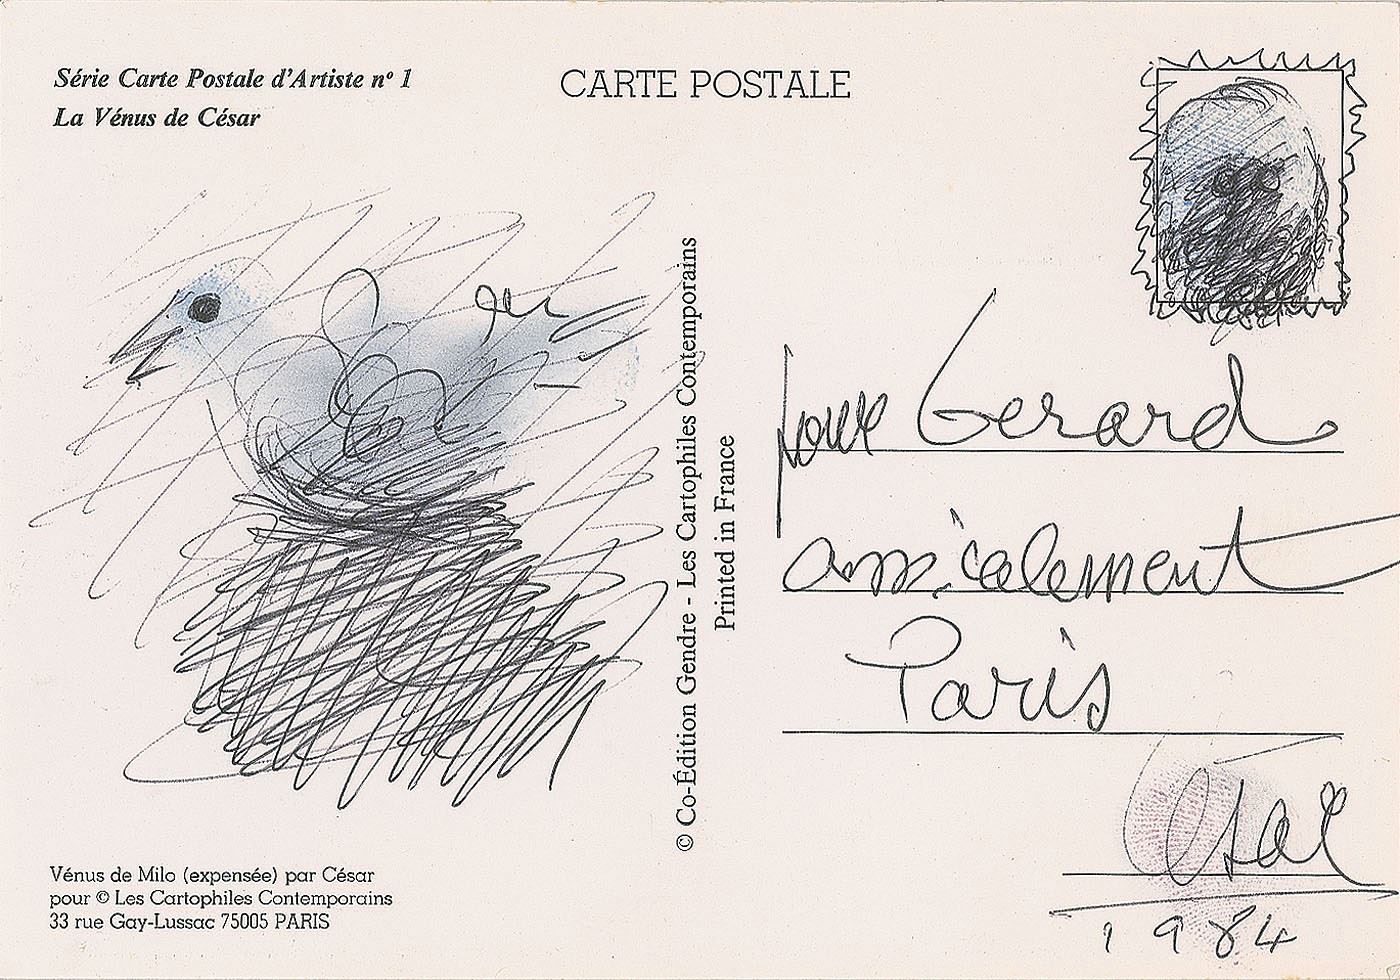 Série Carte Postale d'Artiste nº 1
La Vénus de César
CARTE POSTALE
© Co-Édition Gendre - Les Cartophiles Contemporains
Printed in France
pour Gerard
amicalement
Paris
César
1984
Vénus de Milo (expensée) par César
pour © Les Cartophiles Contemporains
33 rue Gay-Lussac 75005 PARIS